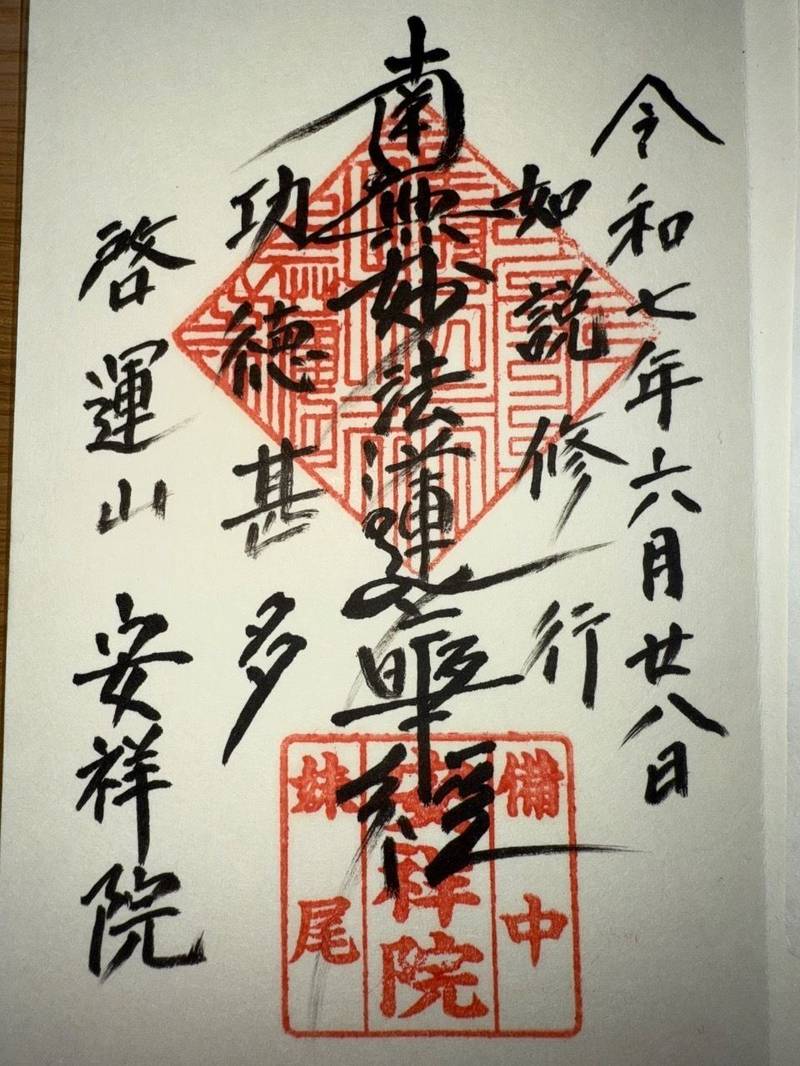 令和七年六月廿八日
如説修行
南無妙法蓮華経
功徳甚多
啓運山 安祥院
備中
安祥院
妹尾